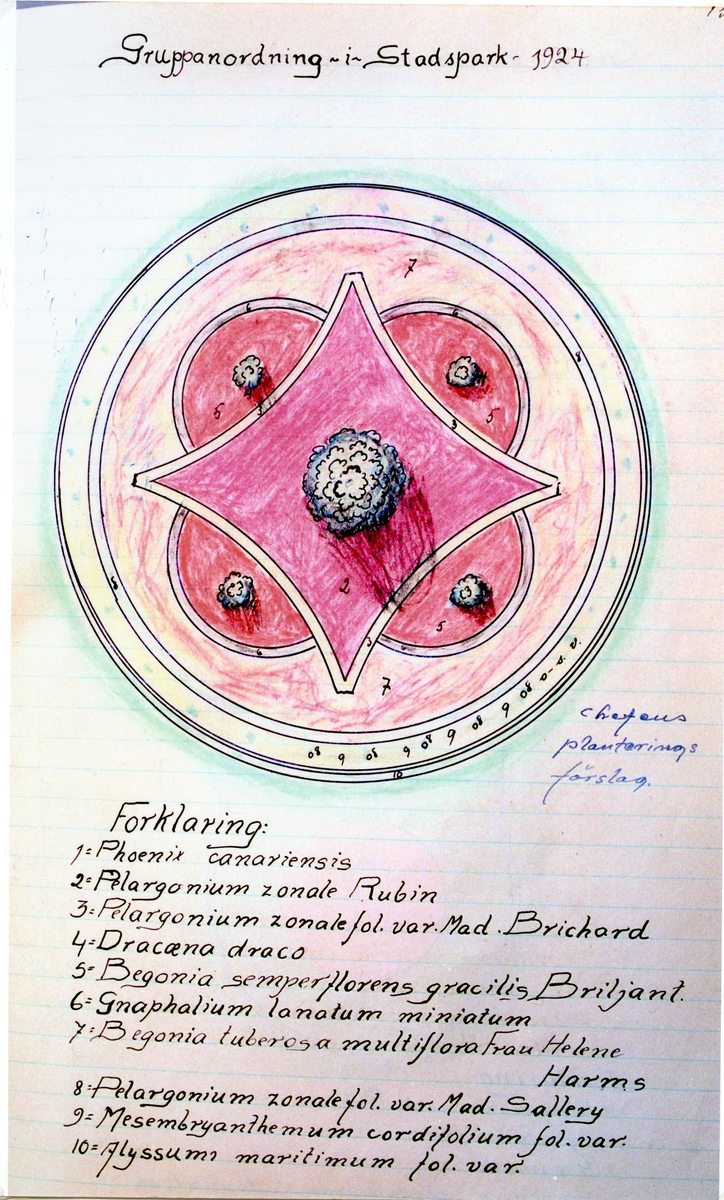 Gruppanordning ~ i ~ Stadspark - 1924
7
6
6
8
5
3
5
3
2
8
5
3
6
6
7
8 9 8 9 8 9 8 9 8 o. s. v.
10
chefens
planterings
förslag.
Förklaring:
1= Phoenix canariensis
2= Pelargonium zonale Rubin
3= Pelargonium zonale fol. var. Mad. Brichard
4= Dracæna draco
5= Begonia semperflorens gracilis Briljant.
6= Gnaphalium lanatum miniatum
7= Begonia tuberosa multiflora Frau Helene
Harms
8= Pelargonium zonale fol. var. Mad. Sallery
9= Mesembryanthemum cordifolium fol. var.
10= Alyssum maritimum fol. var.